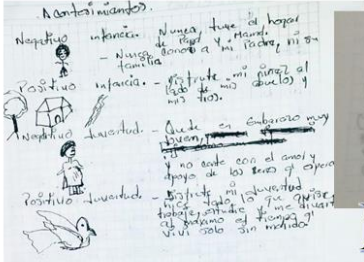 Acontesimientos.
Negativo infancia. Nunca tuve el hogar
de Papá y Mamá.
- Nunca conocí a mi Padre, ni su
familia
Positivo infancia. - disfruté mi niñez al
lado de mis abuelos y
mis tios.
Negativo Juventud. - Quede en embarazo muy
joven,
Y no conte con el amor y
apoyo de los seres q espera
Positivo Juventud - Disfruté mi Juventud
hice todo lo que quise,
trabaje, estudie y me diverti
al máximo el tiempo q
viví solo sin marido